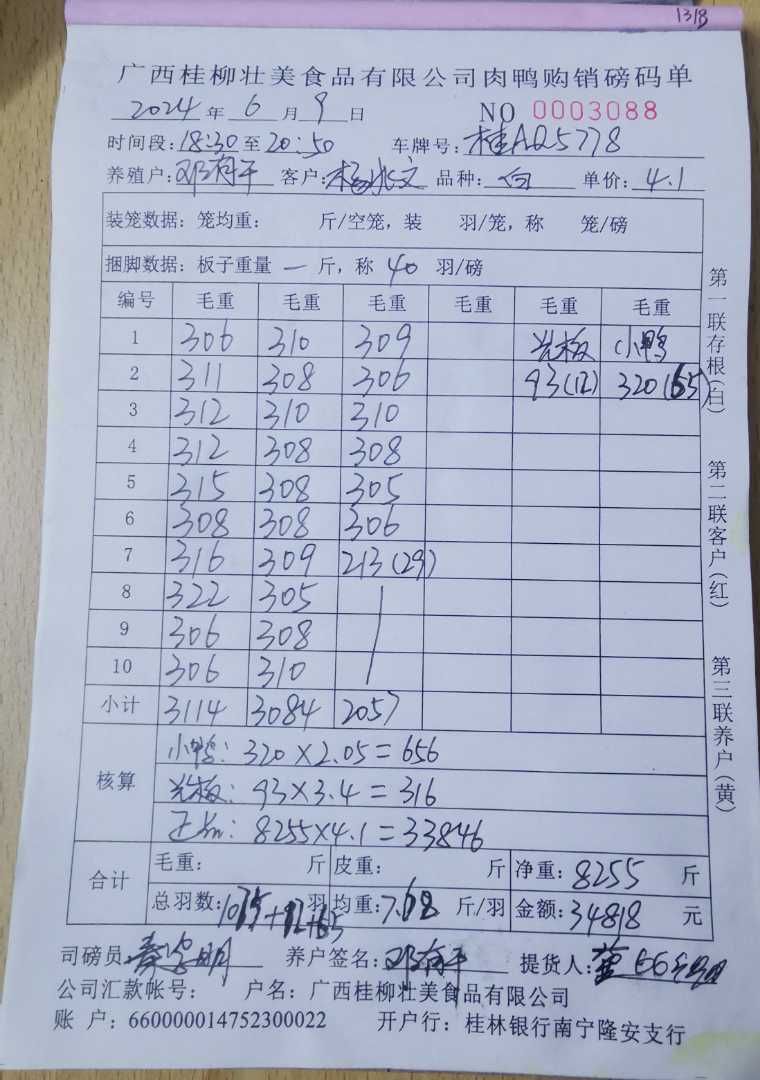 1318
广西桂柳壮美食品有限公司肉鸭购销磅码单
2024年6月9日 NO 0003088
时间段:18:30至20:50 车牌号:桂AQ5778
养殖户:邓有干 客户:杨兆文 品种:白 单价:4.1
装笼数据:笼均重: 斤/空笼,装 羽/笼,称 笼/磅
捆脚数据:板子重量 一 斤,称 40 羽/磅
编号 毛重 毛重 毛重 毛重 毛重 毛重
1 306 310 309 光板 小鸭
2 311 308 306 93(12) 320(65)
3 312 310 310
4 312 308 308
5 315 308 305
6 308 308 306
7 316 309 213(29)
8 322 305
9 306 308
10 306 310
小计 3114 3084 2057
核算
小鸭:320×2.05=656
光板:93×3.4=316
正品:8255×4.1=33846
合计
毛重: 斤 皮重: 斤 净重:8255 斤
总羽数:1075+12+65 羽 均重:7.68 斤/羽 金额:34818 元
司磅员 明 养户签名:邓有干 提货人:
公司汇款帐号: 户名:广西桂柳壮美食品有限公司
账 户:660000014752300022 开户行:桂林银行南宁隆安支行
第一联存根(白)
第二联客户(红)
第三联养户(黄)